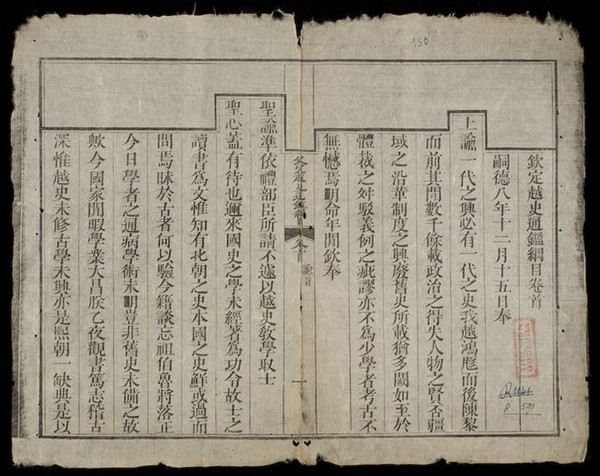 150
欽定越史通鑑綱目卷首
嗣德八年十二月十五日奉
上諭一代之興必有一代之史我越鴻厖而後陳黎
而前其間數千餘載政治之得失人物之賢否疆
域之沿革制度之興廢舊史所載猶多闕如至於
體裁之舛駁義例之疵謬亦不為少學者考古不
無憾焉明命年間欽奉
聖諭準依禮部臣所請不遽以越史教學取士
聖心蓋有待也邇來國史之學未經著為功令故士之
讀書為文惟知有北朝之史本國之史鮮或過而
問焉昧於古者何以驗今籍談忘祖伯魯將落正
今日學者之通病學術未明豈非舊史未備之故
歟今國家閒暇學業大昌朕乙夜觀書篤志稽古
深惟越史未修古學未興亦是熙朝一缺典是以